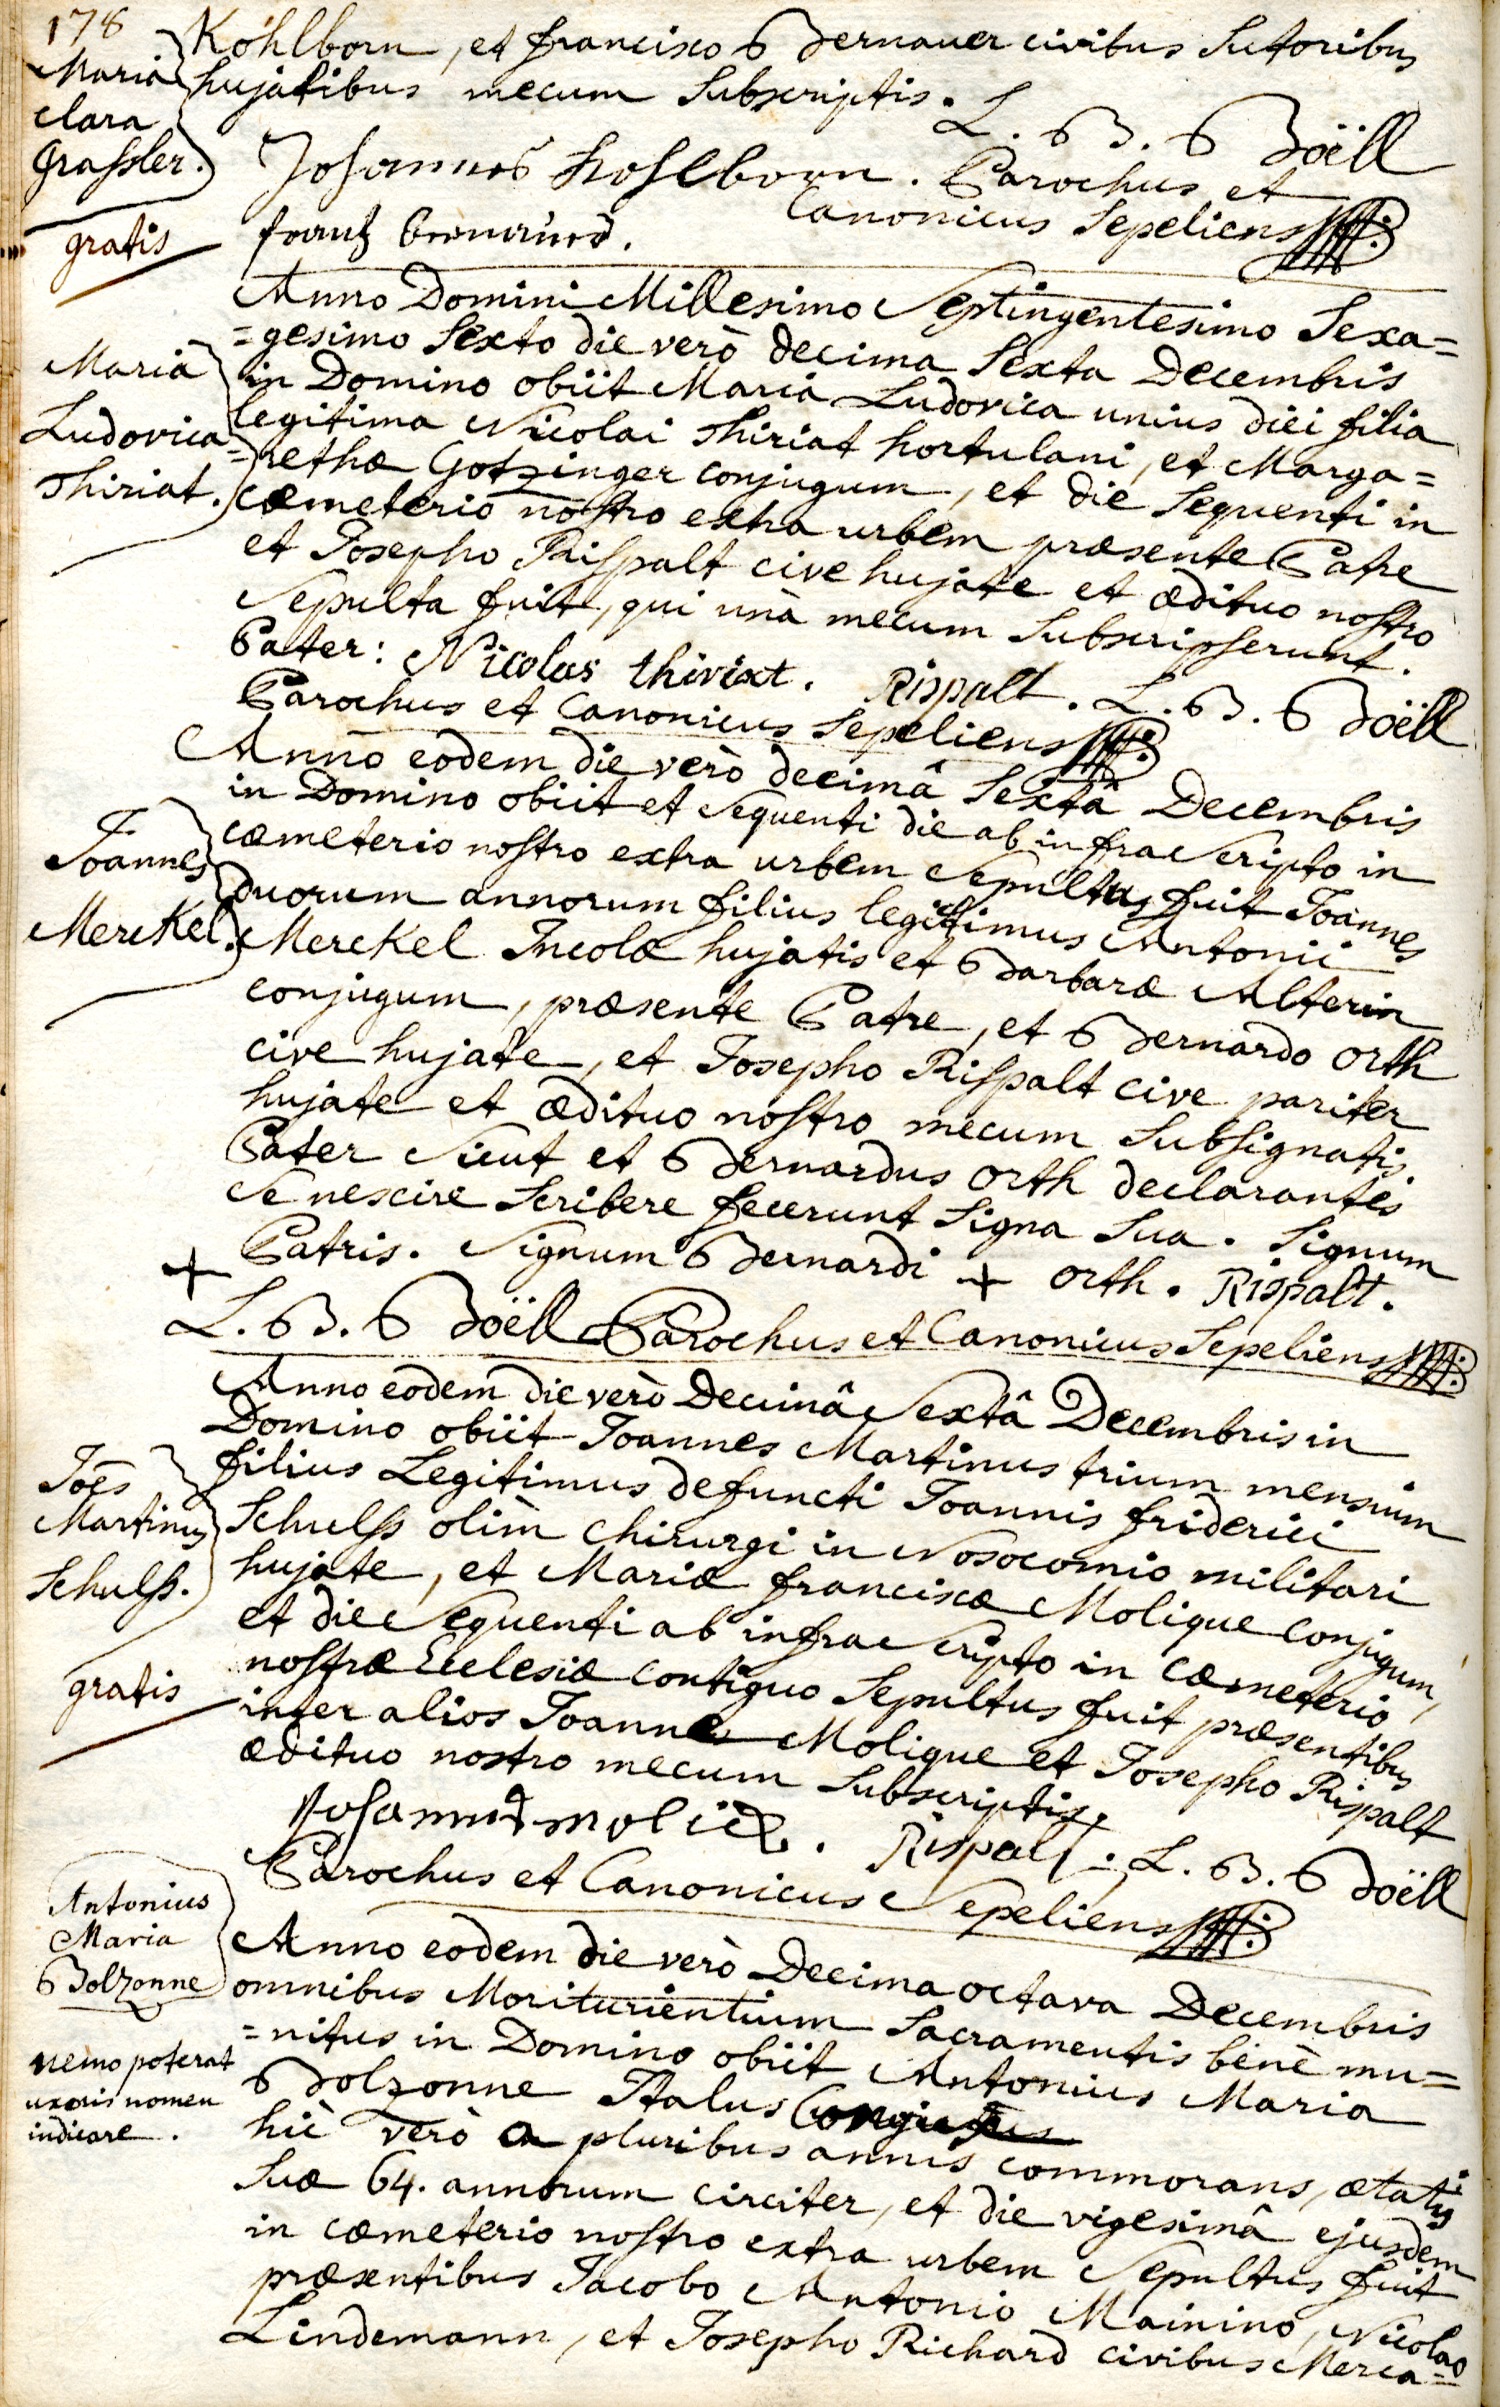 178
Maria
Clara
Grassler.
gratis
Köhlborn, et francisco Bernauer civibus Sutoribus
hujatibus mecum Subscriptis. L. B. Böell
Johannes Kohlborn. Parochus et
Canonicus Sepeliens
frantz
Maria
Ludovica
Thiriat.
Anno Domini Millesimo Septingentesimo Sexa=
=gesimo Sexto die verò decima Sexta Decembris
in Domino obiit Maria Ludovica unius diei filia
legitima Nicolai Thiriat hortulani, et Marga=
=rethæ Gotzinger conjugum, et die Sequenti in
cœmeterio nostro extra urbem præsente Patre
et Josepho Rispalt cive hujate et ædituo nostro
Sepulta fuit, qui unà mecum Subscripserunt.
Pater: Nicolas thiriat. Rispalt. L. B. Böell
Parochus et Canonicus Sepeliens
Joannes
Merckel.
Anno eodem die verò decimâ Sextâ Decembris
in Domino obiit et Sequenti die ab infra Scripto in
cœmeterio nostro extra urbem Sepultus fuit Joannes
duorum annorum filius legitimus Antonii
Merckel Incolæ hujatis et Barbaræ Alterin
conjugum, præsente Patre, et Bernardo Orth
cive hujate, et Josepho Rispalt cive pariter
hujate et ædituo nostro mecum Subsignatis
Pater Sicut et Bernardus Orth declarantes
Se nescire Scribere fecerunt Signa Sua. Signum
+ Patris. Signum Bernardi + Orth. Rispalt.
L. B. Böell Parochus et Canonicus Sepeliens
Joes
Martinus
Schulss.
gratis
Anno eodem die verò Decimâ Sextâ Decembris in
Domino obiit Joannes Martinus trium mensium
filius Legitimus defuncti Joannis friderici
Schulss olim Chirurgi in Nosocomio militari
hujate, et Mariæ franciscæ Molique Conjugum,
et die Sequenti ab infra Scripto in Cæmeterio
nostræ Ecclesiæ contiguo Sepultus fuit præsentibus
inter alios Joanne Molique et Josepho Rispalt
ædituo nostro mecum Subscriptis.
Johannes molick. Rispalt. L. B. Böell
Parochus et Canonicus Sepeliens
Antonius
Maria
Bolzonne
nemo poterat
uxoris nomen
indicare.
Anno eodem die verò Decima octava Decembris
omnibus Moriturientium Sacramentis benè mu=
=nitus in Domino obiit Antonius Maria
Bolzonne Italus
hic verò a pluribus annis commorans, ætatis
Suæ 64. annorum circiter, et die vigesimâ ejusdem
in cœmeterio nostro extra urbem Sepultus fuit
præsentibus Jacobo Antonio Mainino, Nicolao
Lindemann, et Josepho Richard civibus Merca=